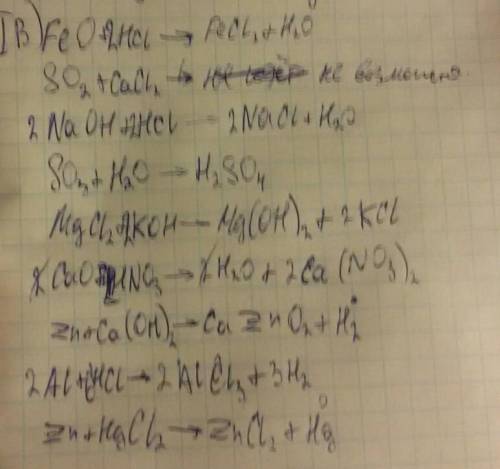 IB) FeO + 2HCl → FeCl₂ + H₂O
SO₂ + CaCl₂ → не возможна.
2NaOH + 2HCl — 2NaCl + H₂O
SO₃ + H₂O → H₂SO₄
MgCl₂ + 2KOH — Mg(OH)₂ + 2KCl
CaO + HNO₃ → H₂O + 2Ca(NO₃)₂
Zn + Ca(OH)₂ → CaZnO₂ + H₂
2Al + 6HCl → 2AlCl₃ + 3H₂
Zn + HgCl₂ → ZnCl₂ + Hg